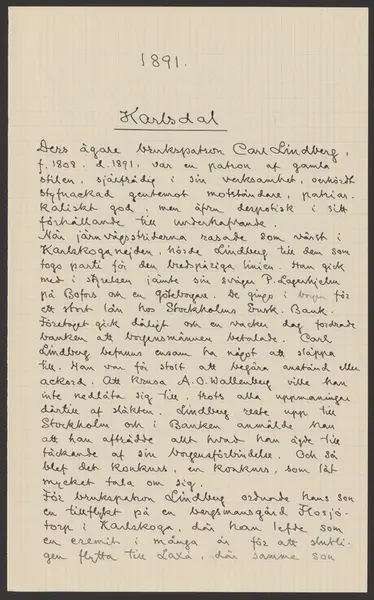 1891.
Karlsdal
Dess ägare brukspatron Carl Lindberg,
f. 1808. d. 1891, var en patron af gamla
stilen, självrådig i sin verksamhet, oerhördt
styfnackad gentemot motståndare, patriar-
kaliskt god, men äfven despotisk i sitt
förhållande till underhafvande.
När järnvägsstriderna rasade som värst i
Karlskoganejden, hörde Lindberg till dem som
togo parti för den bredspåriga linien. Han gick
med i styrelsen jämte sin svåger P. Lagerhjelm
på Bofors och en Göteborgare. De gingo i borgen för
ett stort lån hos Stockholms Ensk. Bank.
Företaget gick dåligt och en vacker dag fordrade
banken att borgensmännen betalade. Carl
Lindberg befanns ensam ha något att släppa
till. Han var för stolt att begära anstånd eller
ackord. Att krusa A. O. Wallenberg ville han
inte nedlåta sig till, trots alla uppmaningar
därtill af släkten. Lindberg reste upp till
Stockholm och i Banken anmälde han
att han afträdde allt hvad han ägde till
täckande af sin borgensförbindelse. Och så
blef det konkurs, en konkurs, som lät
mycket tala om sig.
För brukspatron Lindberg ordnade hans son
en tillflykt på en bergsmansgård Flosjö-
torp i Karlskoga, där han lefde som
en eremit i många år för att slutli-
gen flytta till Laxå, där samme son